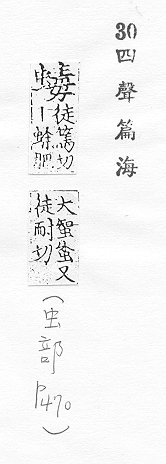 30 四聲篇海
徒篤切
丨蜍肥
大蟹蚤又
徒耐切
(虫部 P470)